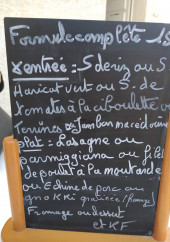 Formule complète 15
entrée : S de riz ou S
Haricot vert ou S. de
Tomates à la ciboulette ou
Terrines ou Jambon macédoine
plat : Lasagne ou
parmiggiana ou filet
de poulet à la moutarde
ou Echine de porc au
gnokki gratinés (fromage)
Fromage ou dessert
et KF